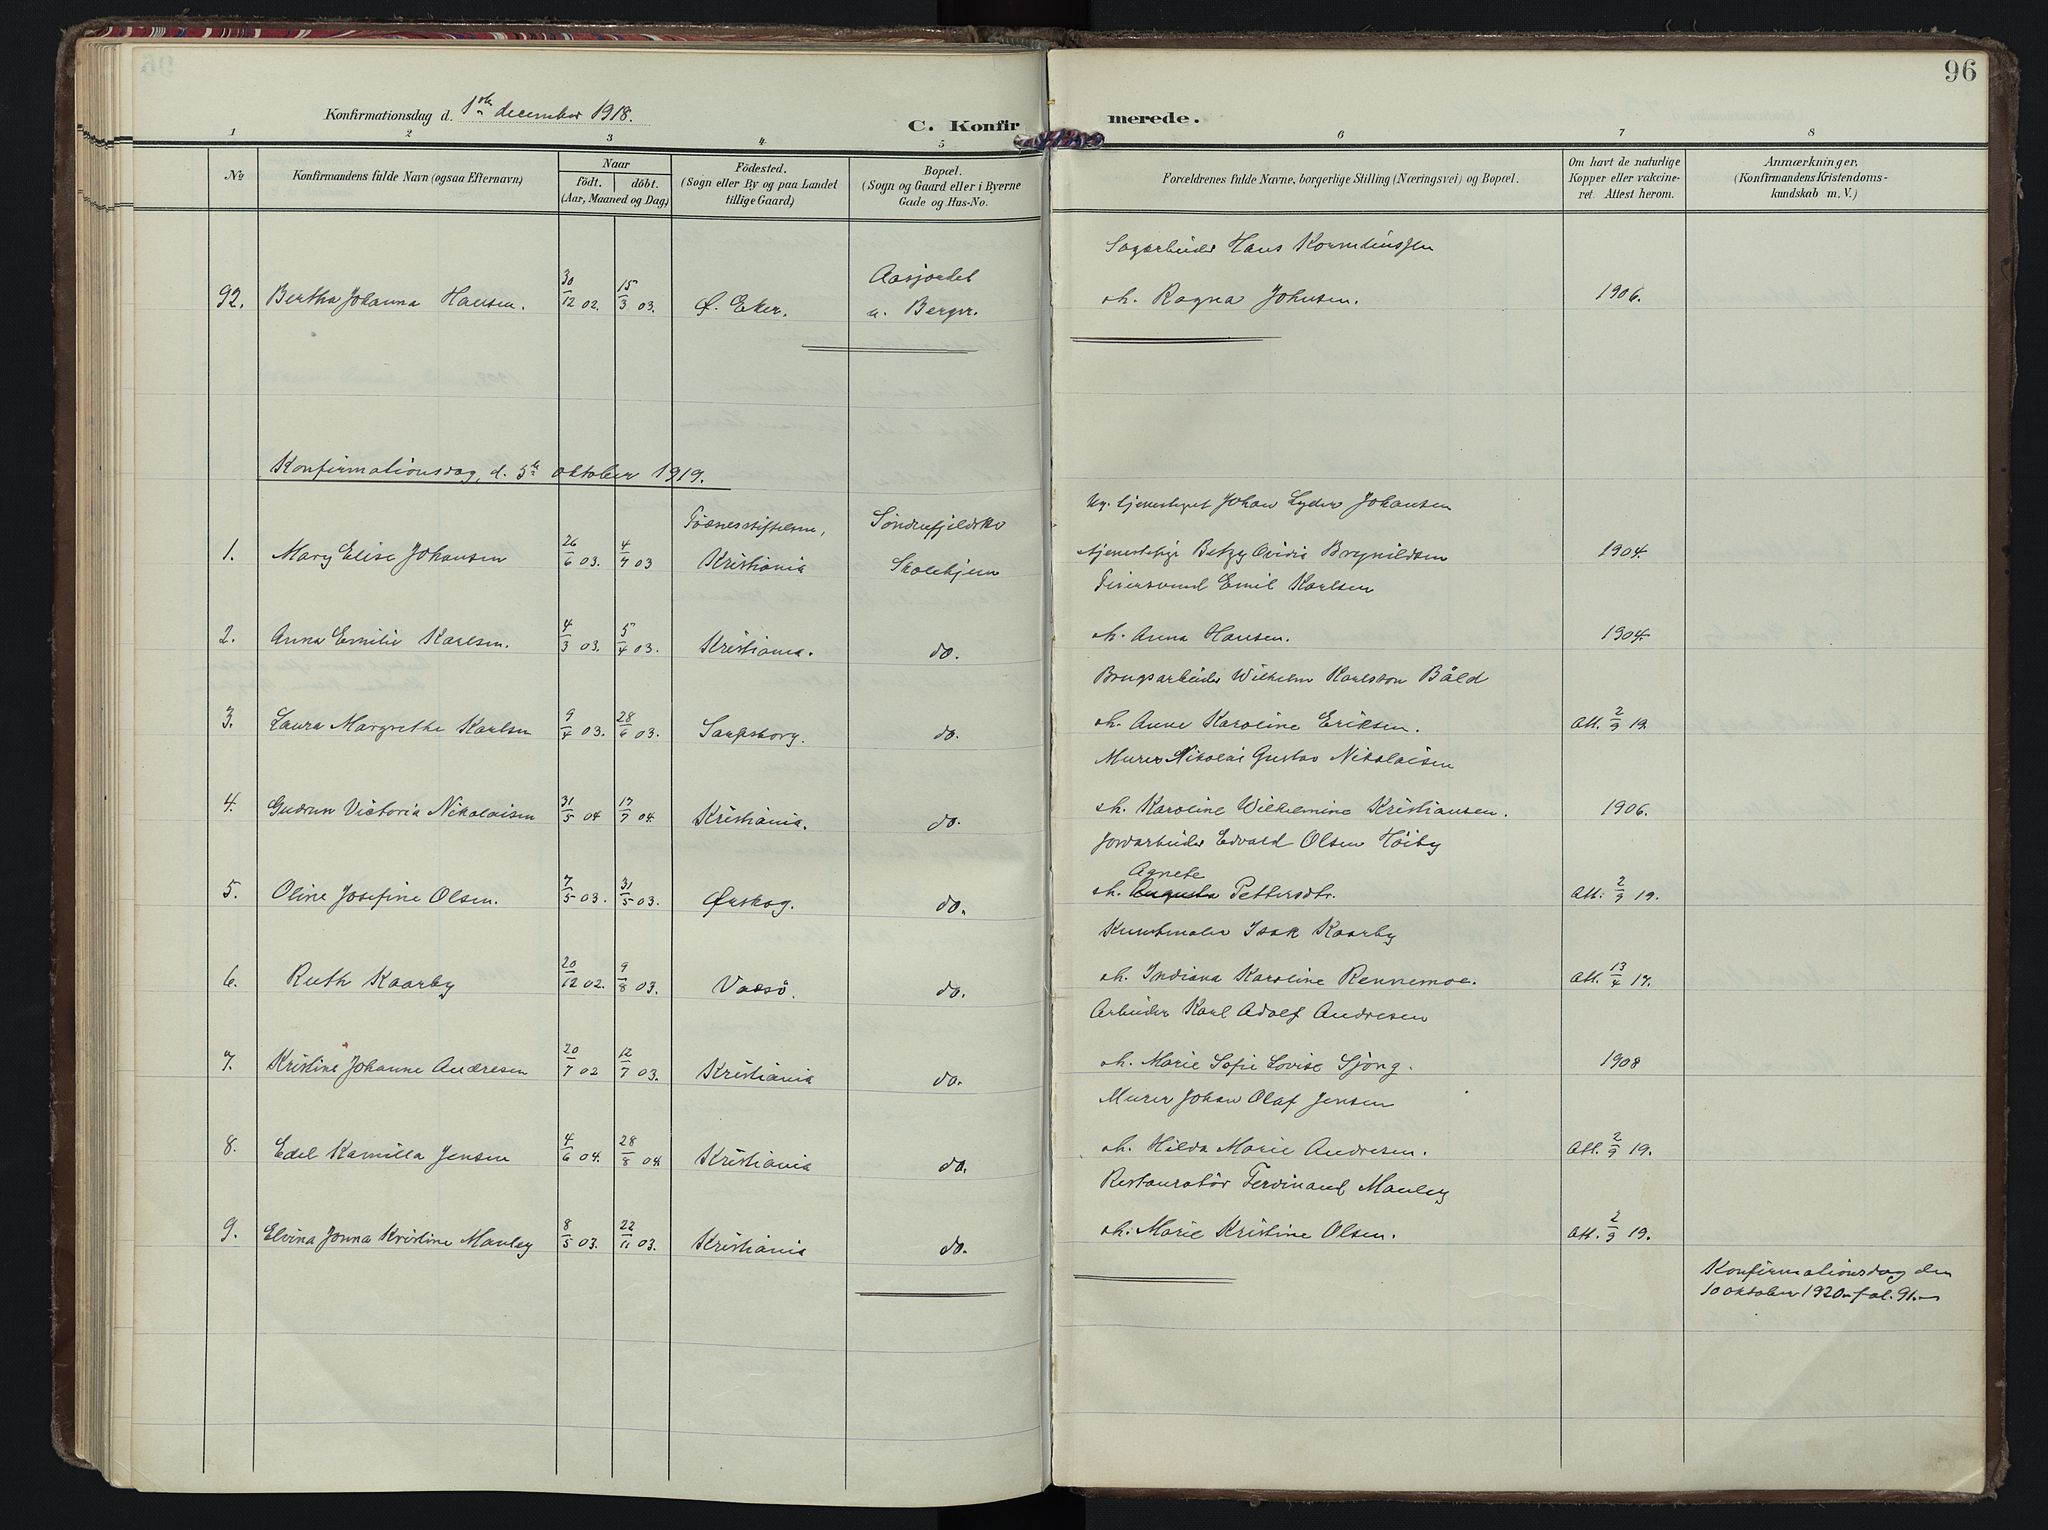 96
Konfirmationsdag d. 1ste december 1918.
C. Konfirmerede.
1 2 3 4 5 6 7 8
No
Konfirmandens fulde Navn (ogsaa Efternavn)
Naar
født. døbt.
(Aar, Maaned og Dag)
Fødested.
(Sogn eller By og paa Landet
tillige Gaard)
Bopæl.
(Sogn og Gaard eller i Byerne
Gade og Hus-No.
Forældrenes fulde Navne, borgerlige Stilling (Næringsvei) og Bopæl.
Om havt de naturlige
Kopper eller vakcine-
ret. Attest herom.
Anmærkninger.
(Konfirmandens Kristendoms-
kundskab m. V.)
Aasjordet Sagarbeider Hans
92. Bertha Johanna Hansen. 30/12 02. 15/3 03. Ø. Eker. u. Berger. oh. Ragna Johnsen. 1906.
Konfirmationsdag, d. 5te oktober 1919.
Johan Lyder Johansen
1. Mary Elise Johansen 26/6 03. 4/9 03 Kristiania Skolehjem Betzy Ovidia Brynildsen 1904
Emil Karlsen
2. Anna Emilie Karlsen. 4/3 03. 5/4 03. Kristiania. do. oh. Anna Hansen. 1904.
Brugsarbeider Wilhelm Karlsson Båld
3. Laura Margrethe Karlsen 9/4 03. 28/6 03. Sarpsborg. do. oh. Anne Karoline Eriksen. Att. 2/9 19.
Murer Nikolai Gustav Nikolaisen
4. Gudrun Victoria Nikolaisen 31/5 04 17/7 04. Kristiania. do. oh. Karoline Wilhelmine Kristiansen. 1906.
Jordarbeider Edvard Olsen Høiby
Agnete
5. Oline Josefine Olsen. 7/5 03. 31/5 03. Ørskog. do. oh. Augusta Pettersdtr. Att. 2/9 19.
Kunstmaler Isak Kaarby
6. Ruth Kaarby 20/12 02. 9/8 03. Vadsö. do. oh. Indiana Karoline Rennemoe. Att. 13/4 17.
Arbeider Karl Adolf Andresen
7. Kristine Johanne Andresen 20/7 02 12/7 03. Kristiania do. oh. Marie Sofie Lovise Sjöng. 1908
Murer Johan Olaf Jensen
8. Edel Kamilla Jensen 4/6 04. 28/8 04. Kristiania do. oh. Hilda Marie Andresen. Att. 2/9 19.
Restauratör Ferdinand Manley
9. Elvina Jonna Kristine Manley 8/5 03. 22/11 03. Kristiania do. oh. Marie Kristine Olsen. Att. 2/9 19.
Konfirmationsdag den
10 oktober 1920 – fol. 91. –